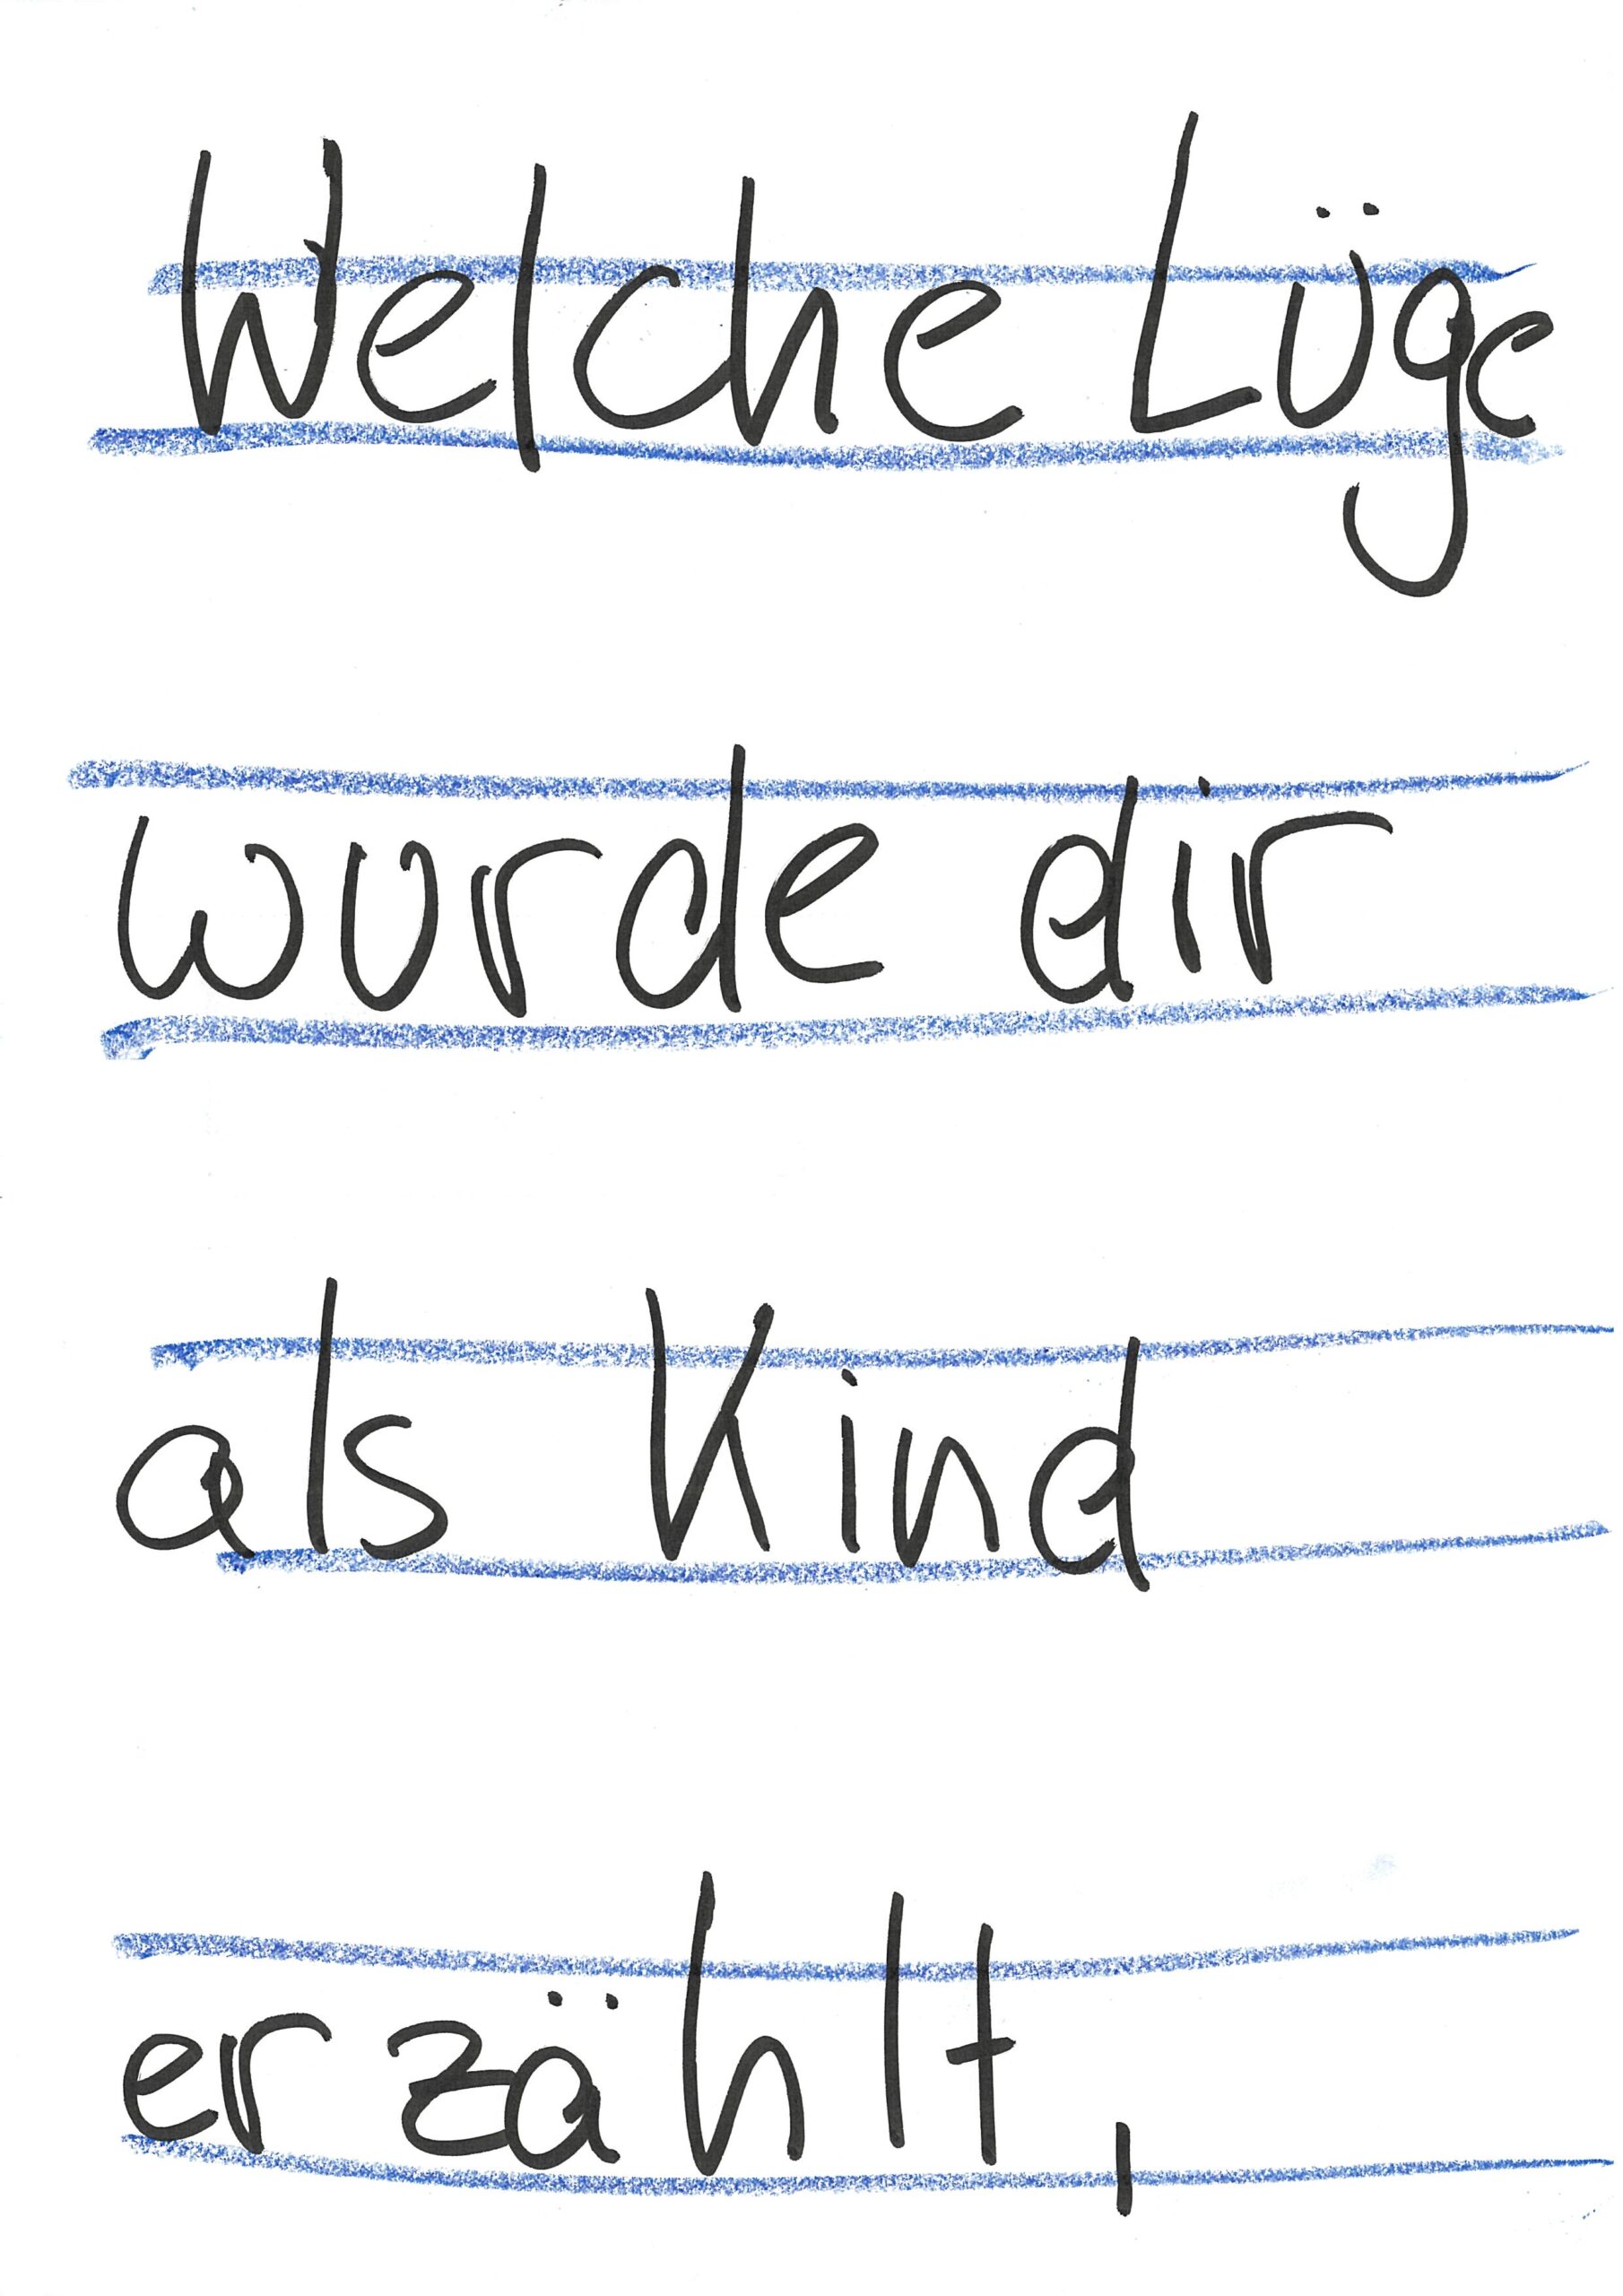 Welche Lüge
wurde dir
als Kind
erzählt,